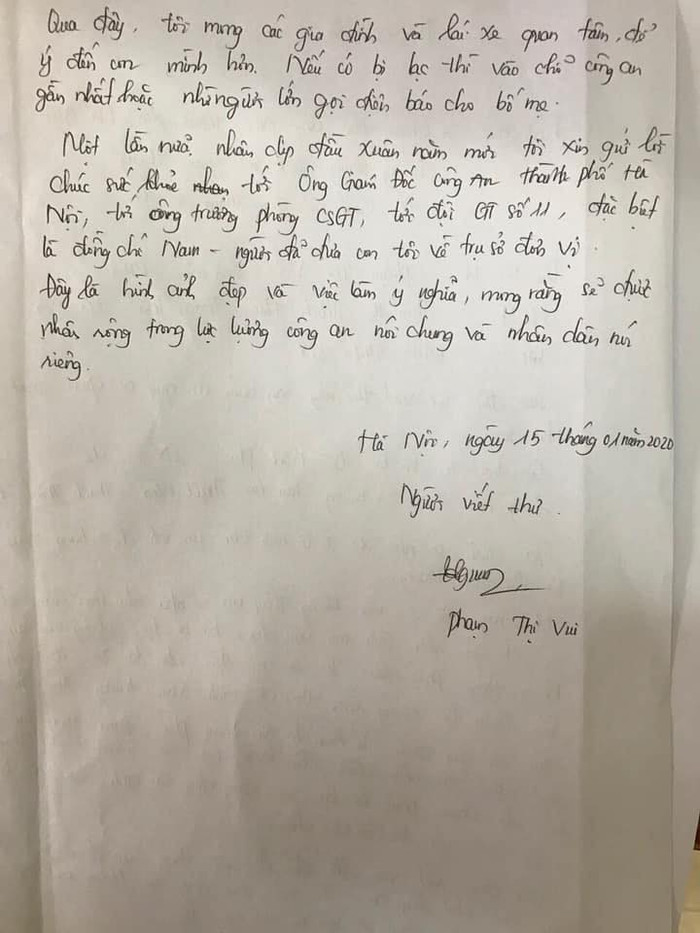 Qua đây, tôi mong các gia đình và lái xe quan tâm, để
ý đến con mình hơn. Nếu có bị lạc thì vào chỗ công an
gần nhất hoặc những người lớn gọi điện báo cho bố mẹ.
Một lần nữa, nhân dịp đầu xuân năm mới tôi xin gửi lời
chúc sức khỏe tới Ông Giám Đốc Công An thành phố Hà
Nội, tới đồng trưởng phòng CSGT, tới đội GT số 11, đặc biệt
là đồng chí Nam - người đã đưa con tôi về trụ sở đơn vị.
Đây là hình ảnh đẹp và việc làm ý nghĩa, mong rằng sẽ được
nhân rộng trong lực lượng công an nói chung và nhân dân nói
riêng.
Hà Nội, ngày 15 tháng 01 năm 2020
Người viết thư.
Phạm Thị Vui